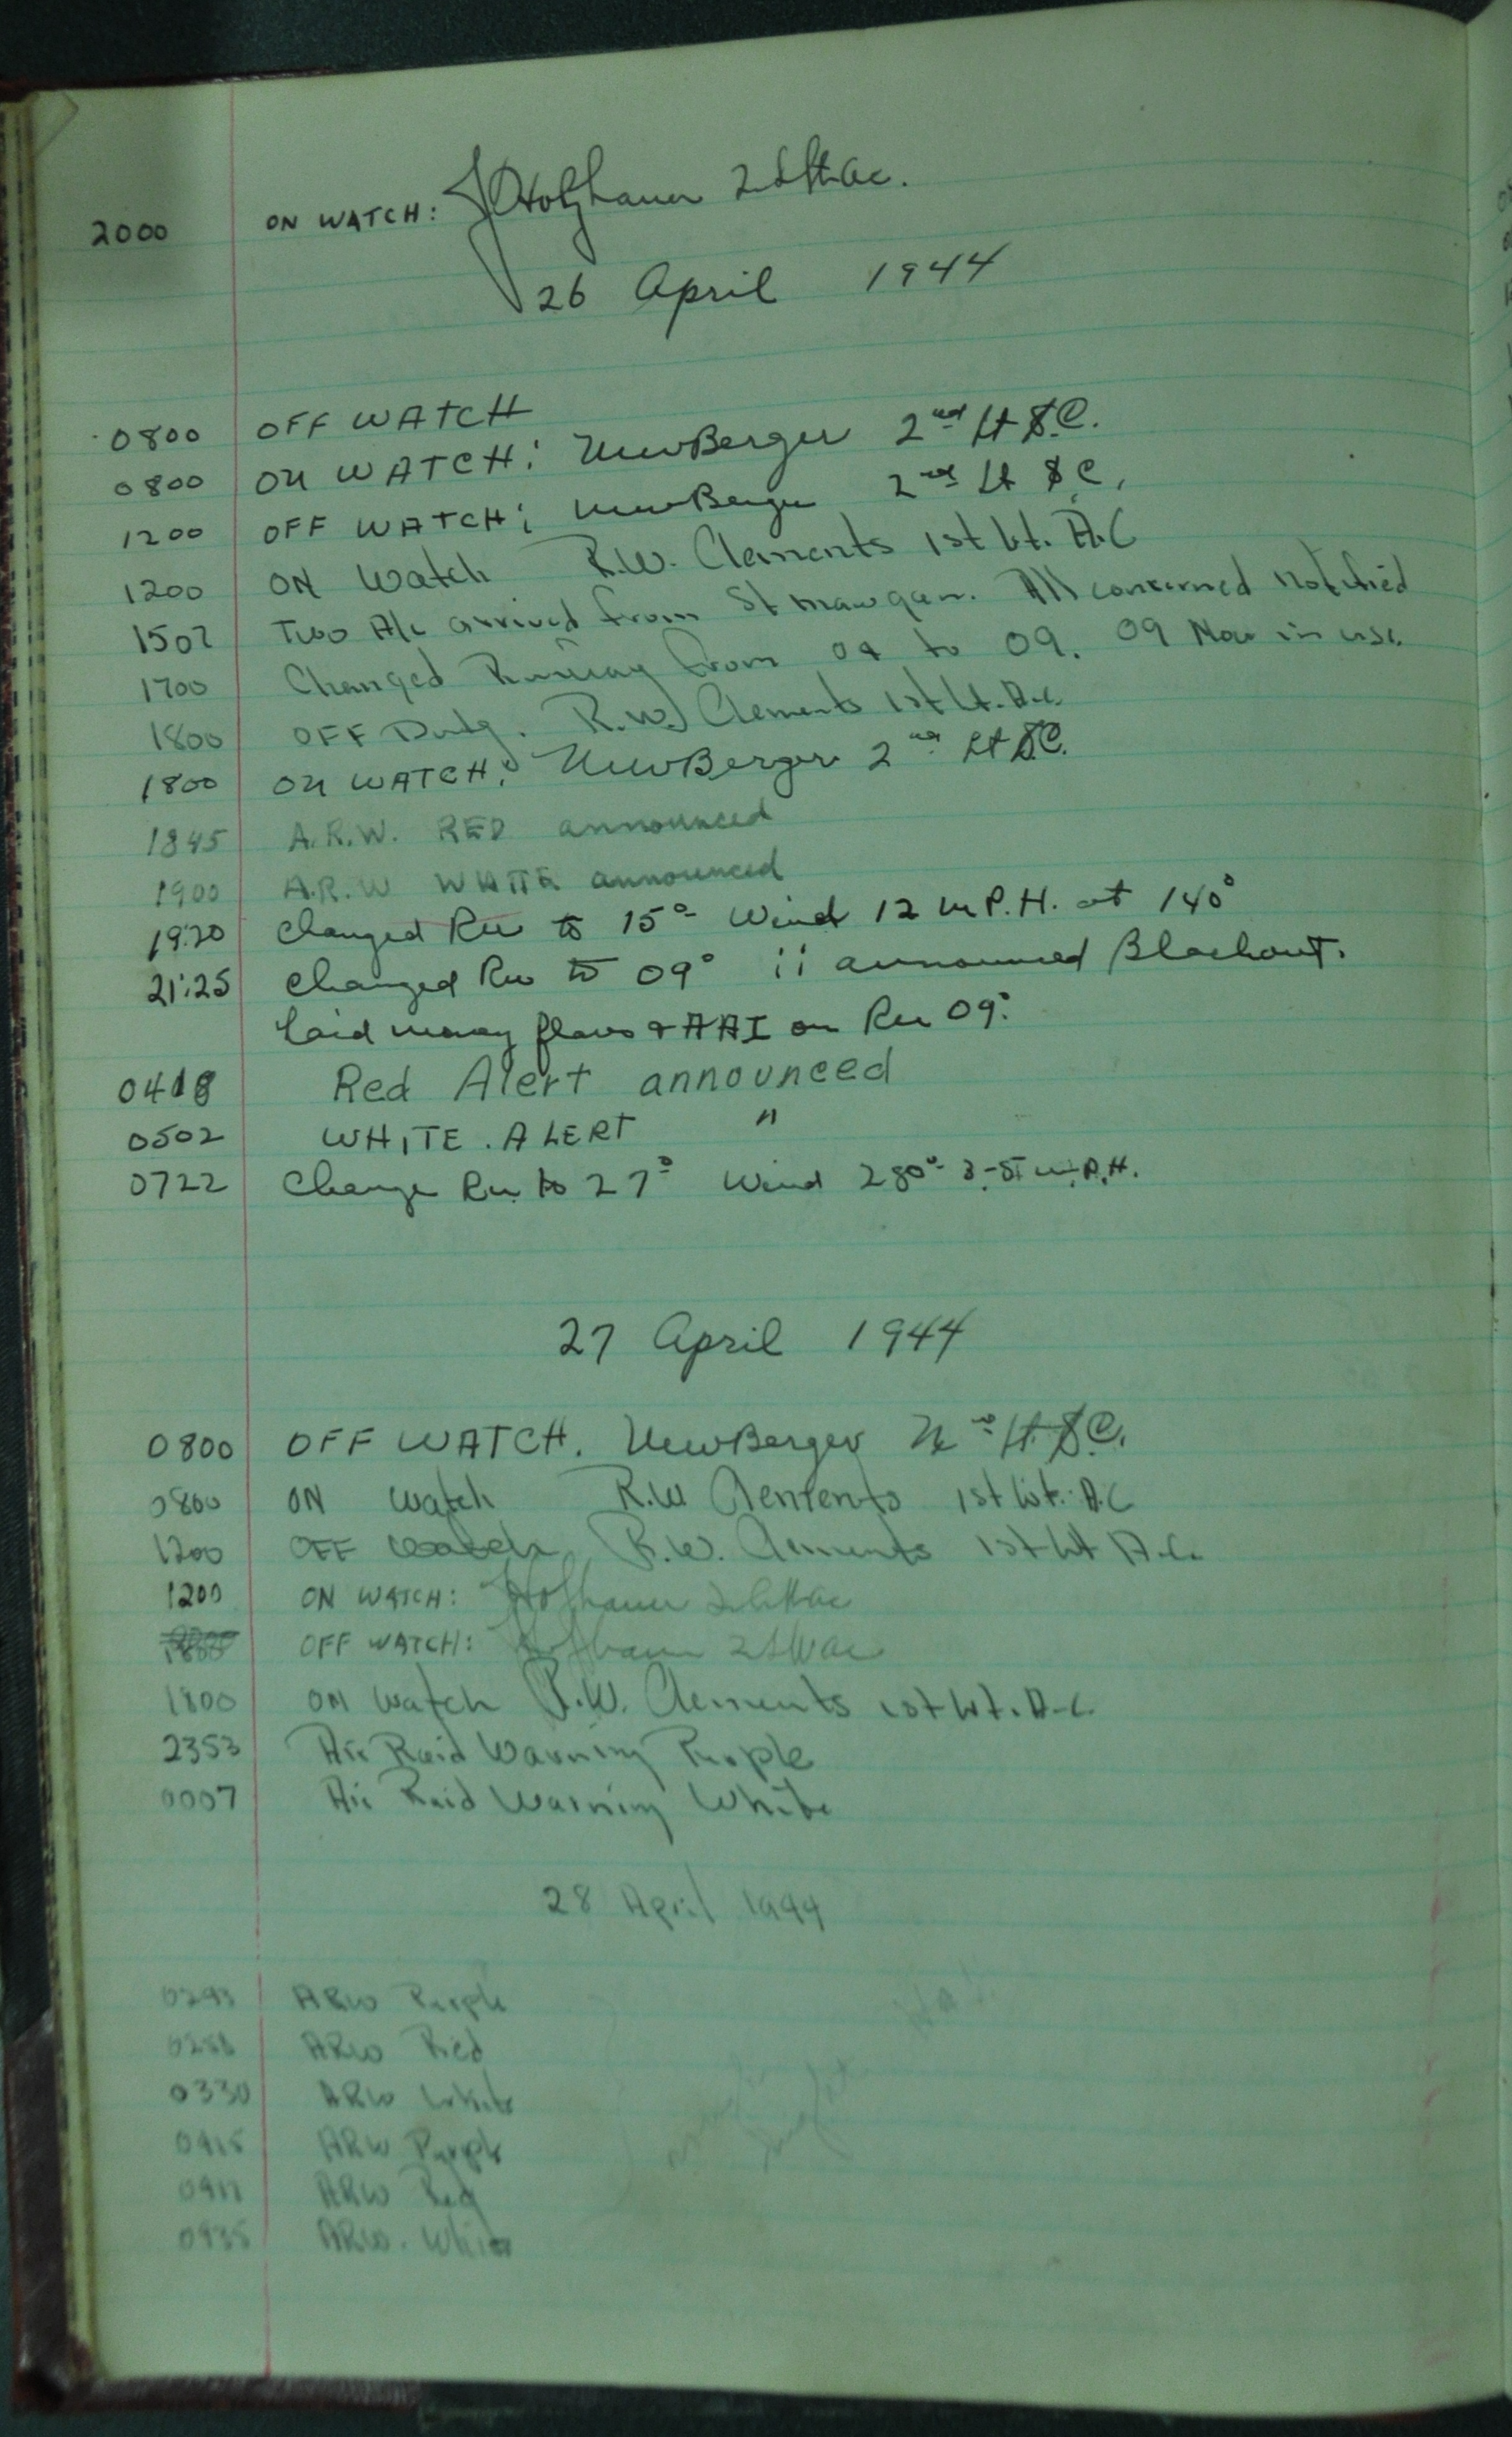 2000 ON WATCH: J Holzhauer 2d Lt. ac.
26 April 1944
0800 OFF WATCH
0800 ON WATCH: NewBerger 2nd Lt S.C.
1200 OFF WATCH: NewBerger 2nd Lt S.C.
1200 ON Watch R.W. Clements 1st Lt. A.C
1507 Two A/c arrived from St Mawgan. All concerned notified
1700 Changed Runway from to 09. 09 Now in use.
1800 OFF Duty. R.W. Clements 1st Lt. A.C.
1800 ON WATCH: NewBerger 2nd Lt S.C.
1845 A.R.W. RED announced
1900 A.R.W WHITE announced
1920 Changed Rw to 15° Wind 12 M.P.H. at 140°
21:25 Changed Rw to 09° :: announced Blackout.
Laid flares & AAI on Rw 09°
0418 Red Alert announced
0502 WHITE. ALERT "
0722 Change Rw to 27° Wind 280° 3-5 M.P.H.
27 April 1944
0800 OFF WATCH. NewBerger 2nd Lt. S.C.
0800 ON Watch R.W Clements 1st Lt. A.C
1200 OFF Watch R.W. Clements 1st Lt A.C.
1200 ON WATCH: J Holzhauer 2d Lt ac
1800 OFF WATCH: J Holzhauer 2d Lt ac
1800 ON Watch R.W. Clements 1st Lt. A.C.
2353 Air Raid Warning Purple
0007 Air Raid Warning White
28 April 1944
ARW Purple
ARW Red
0330 ARW White
0415 ARW Purple
ARW Red
ARW. White